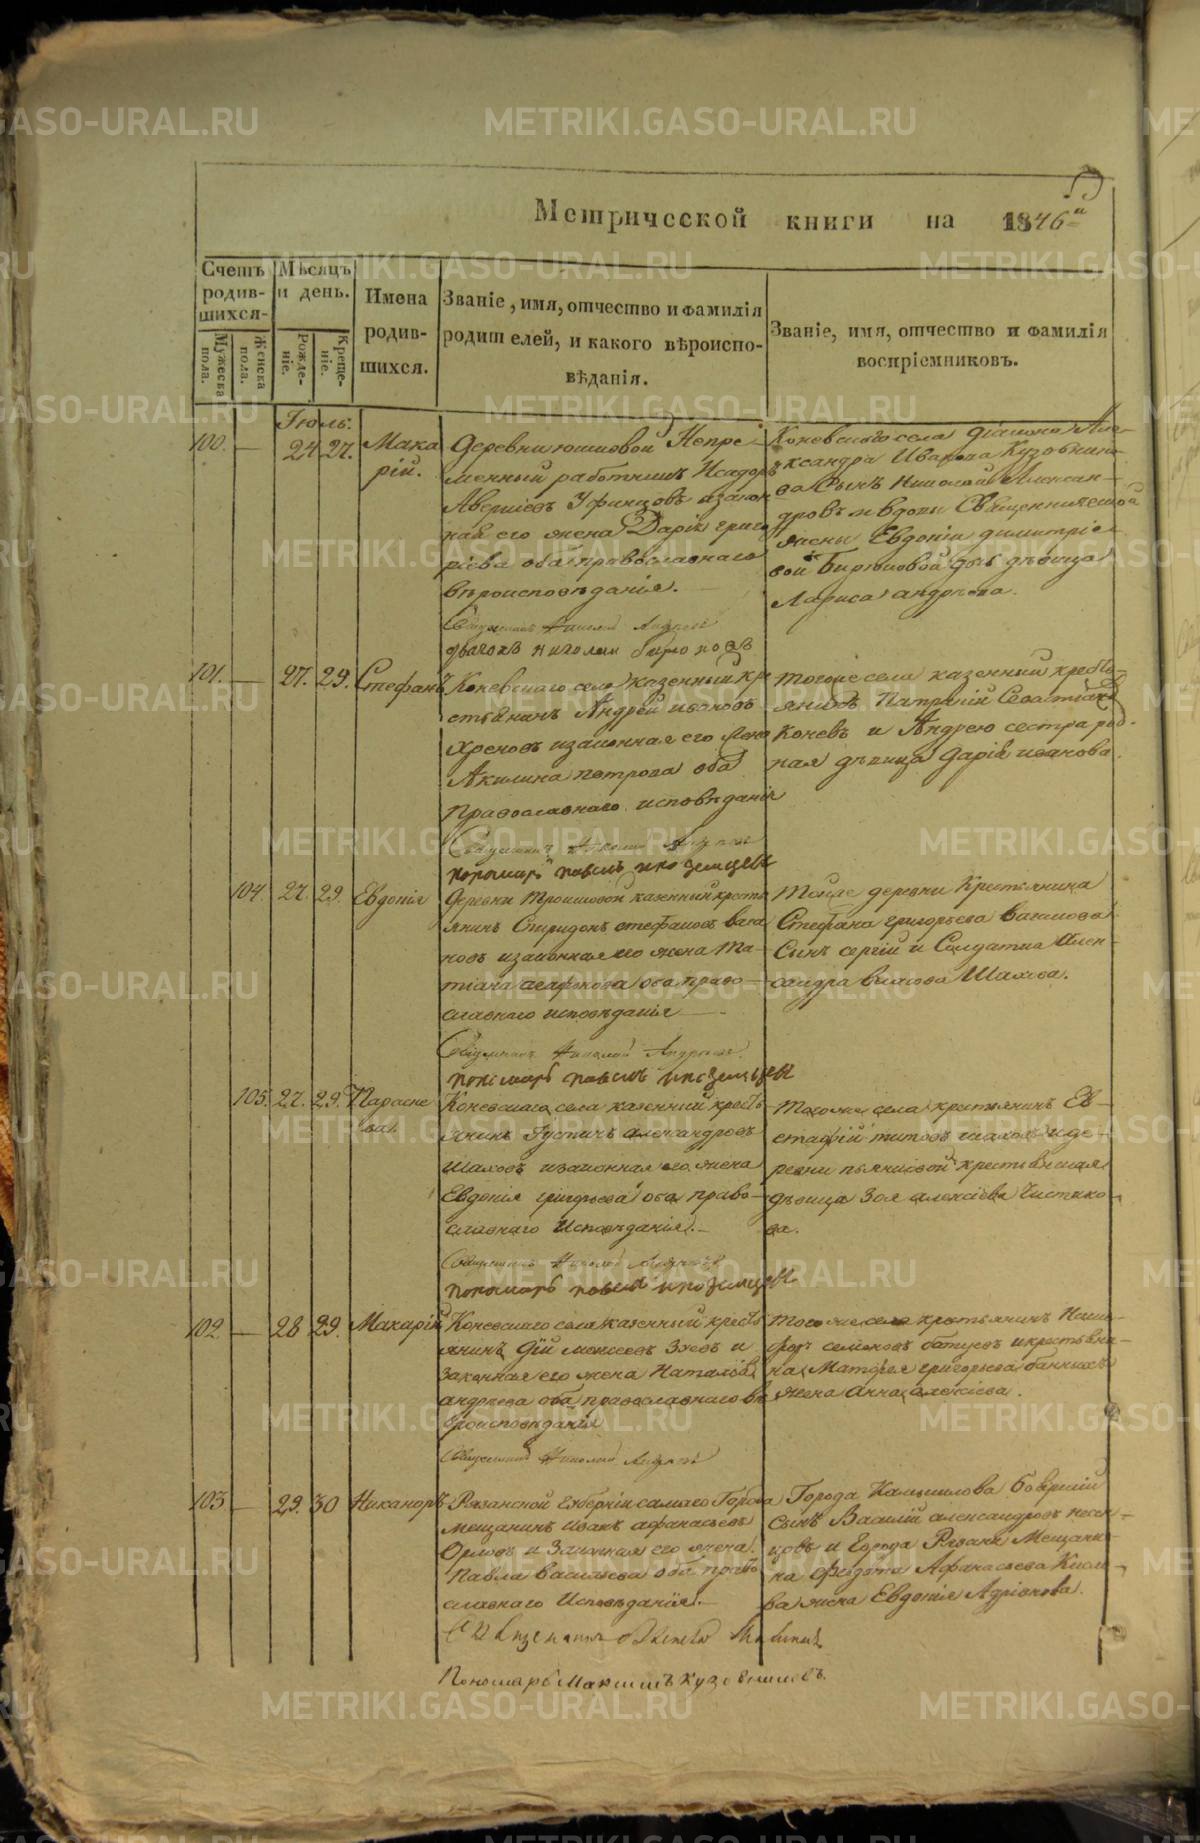 Метрической книги на 1846й
Счетъ родив-шихся.
Мѣсяцъ и день.
Имена родив-шихся.
Званіе, имя, отчество и фамилія родителей, и какого вѣроиспо-вѣданія.
Званіе, имя, отчество и фамилія воспріемниковъ.
Мужеска пола.
Женска пола.
Рожде-ніе.
Креще-ніе.
Іюль.
100. — 24 27. Мака
рій.
Деревни Непре-
менный работникъ Исадоръ
Уфинцовъ и закон
ная его жена Дарія Григо
ріева оба православнаго
вѣроисповѣданія. —
Священникъ Николай
Николаи Бирюковъ
Коневскаго села діакона Але-
ксандра Иванова Кузовнико-
ва сынъ Николай Алексан-
дровъ и вдовы Священнической
жены Евдокіи Димитріе-
вой Бирюковой дочь дѣвица
Лариса Андреева.
101. — 27. 29. Стефанъ
Коневскаго села казенный кр
стьянинъ Андрей Ивановъ
Хреновъ и законная его жена
Акилина Петрова оба
Православнаго исповѣданія
Священникъ Николай
Пономарь Павелъ Иноземцевъ
Тогоже села казенный кресть-
янинъ Патракій
Коневъ и Андрею сестра род-
ная дѣвица Дарія Иванова.
104. 27. 29. Евдокія
Деревни казенный кресть
янинъ Спиридонъ Стефановъ
и законная его жена Та-
тіана Агафонова оба право-
славнаго исповѣданія —
Священникъ Николай
Пономарь Павелъ Иноземцевъ
Тойже деревни Крестьянина
Стефана Григорьева
Сынъ Сергій и Солдатка Алек-
сандра
105. 27. 29. Параске
ва.
Коневскаго села казенный кресть-
янинъ Густинъ Александровъ
Шаховъ и законная его жена
Евдокія Григорьева оба право-
славнаго Исповѣданія. —
Священникъ Николай
Пономарь Павелъ Иноземцевъ
Тогоже села крестьянинъ Ев-
стафій Титовъ Шаховъ и де-
ревни крестьянская
дѣвица Зоя Алексіева Чистяко-
ва.
102. — 28 29. Макарій
Коневскаго села казенный кресть
янинъ Дій Моисеевъ Зуевъ и
законная его жена Наталія
Андреева оба православнаго вѣ
роисповѣданія
Священникъ Николай
Тогоже села крестьянинъ Ники-
форъ Семеновъ и крестьяни-
на Матфея Григорьева
жена Анна Алексіева.
103 — 29. 30 Никаноръ
Рязанской Губерніи самаго Города
мещанинъ Иванъ Афанасьевъ
Орловъ и Законная его жена
Павла Васильева оба право
славнаго Исповѣданія. —
Священникъ
Пономарь Максимъ Кузовниковъ.
Города Камышлова
Сынъ Василій Александровъ
и Города Рязани Мещани-
на Федота Афанасьева
ва жена Евдокія Адріанова.
METRIKI.GASO-URAL.RU